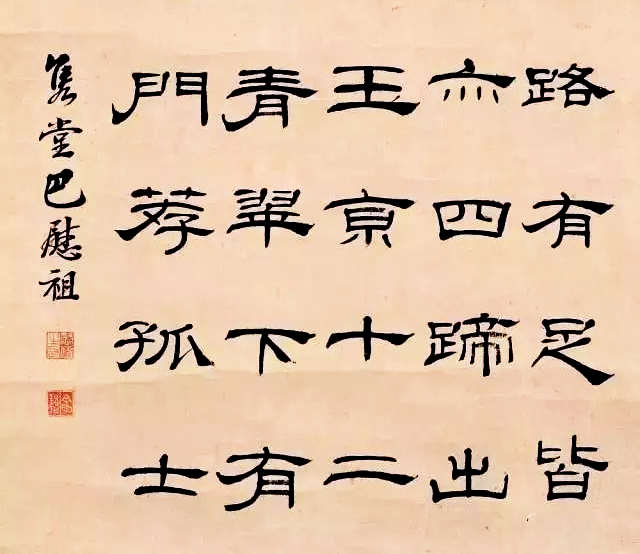 路有足皆
亦四蹄出
玉京十二
青翠下有
門荐孤士
雋堂巴慰祖